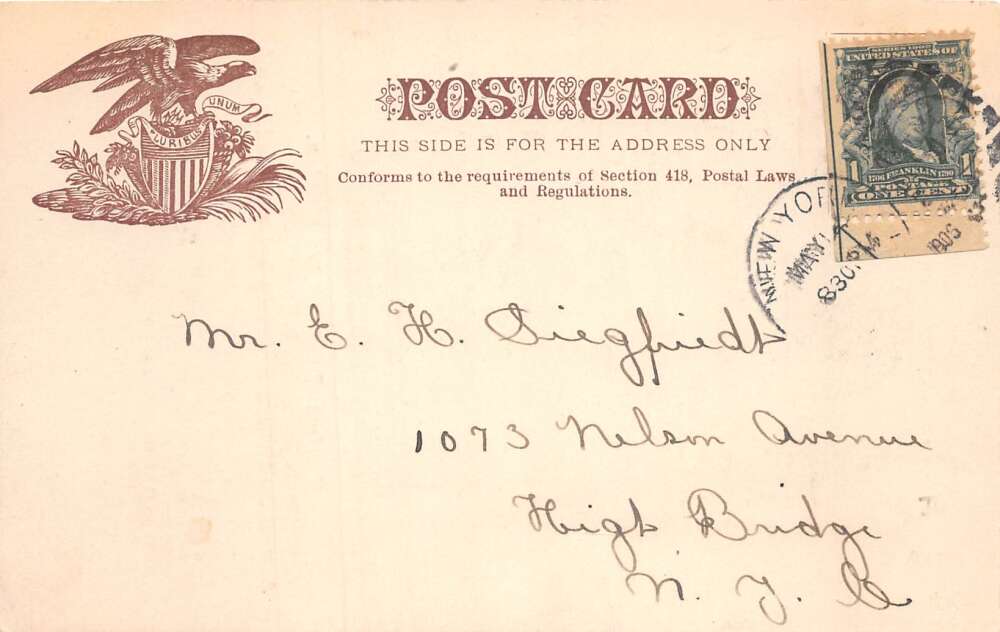 UNUM
PLURIBUS
POST CARD
THIS SIDE IS FOR THE ADDRESS ONLY
Conforms to the requirements of Section 418, Postal Laws
and Regulations.
SERIES 1902
UNITED STATES OF
1 1706 FRANKLIN 1790 1
POSTAGE
ONE CENT
NEW YORK
MAY
830P
1906
Mr. E. H. Siegfriedt
1073 Nelson Avenue
High Bridge
N. Y. C